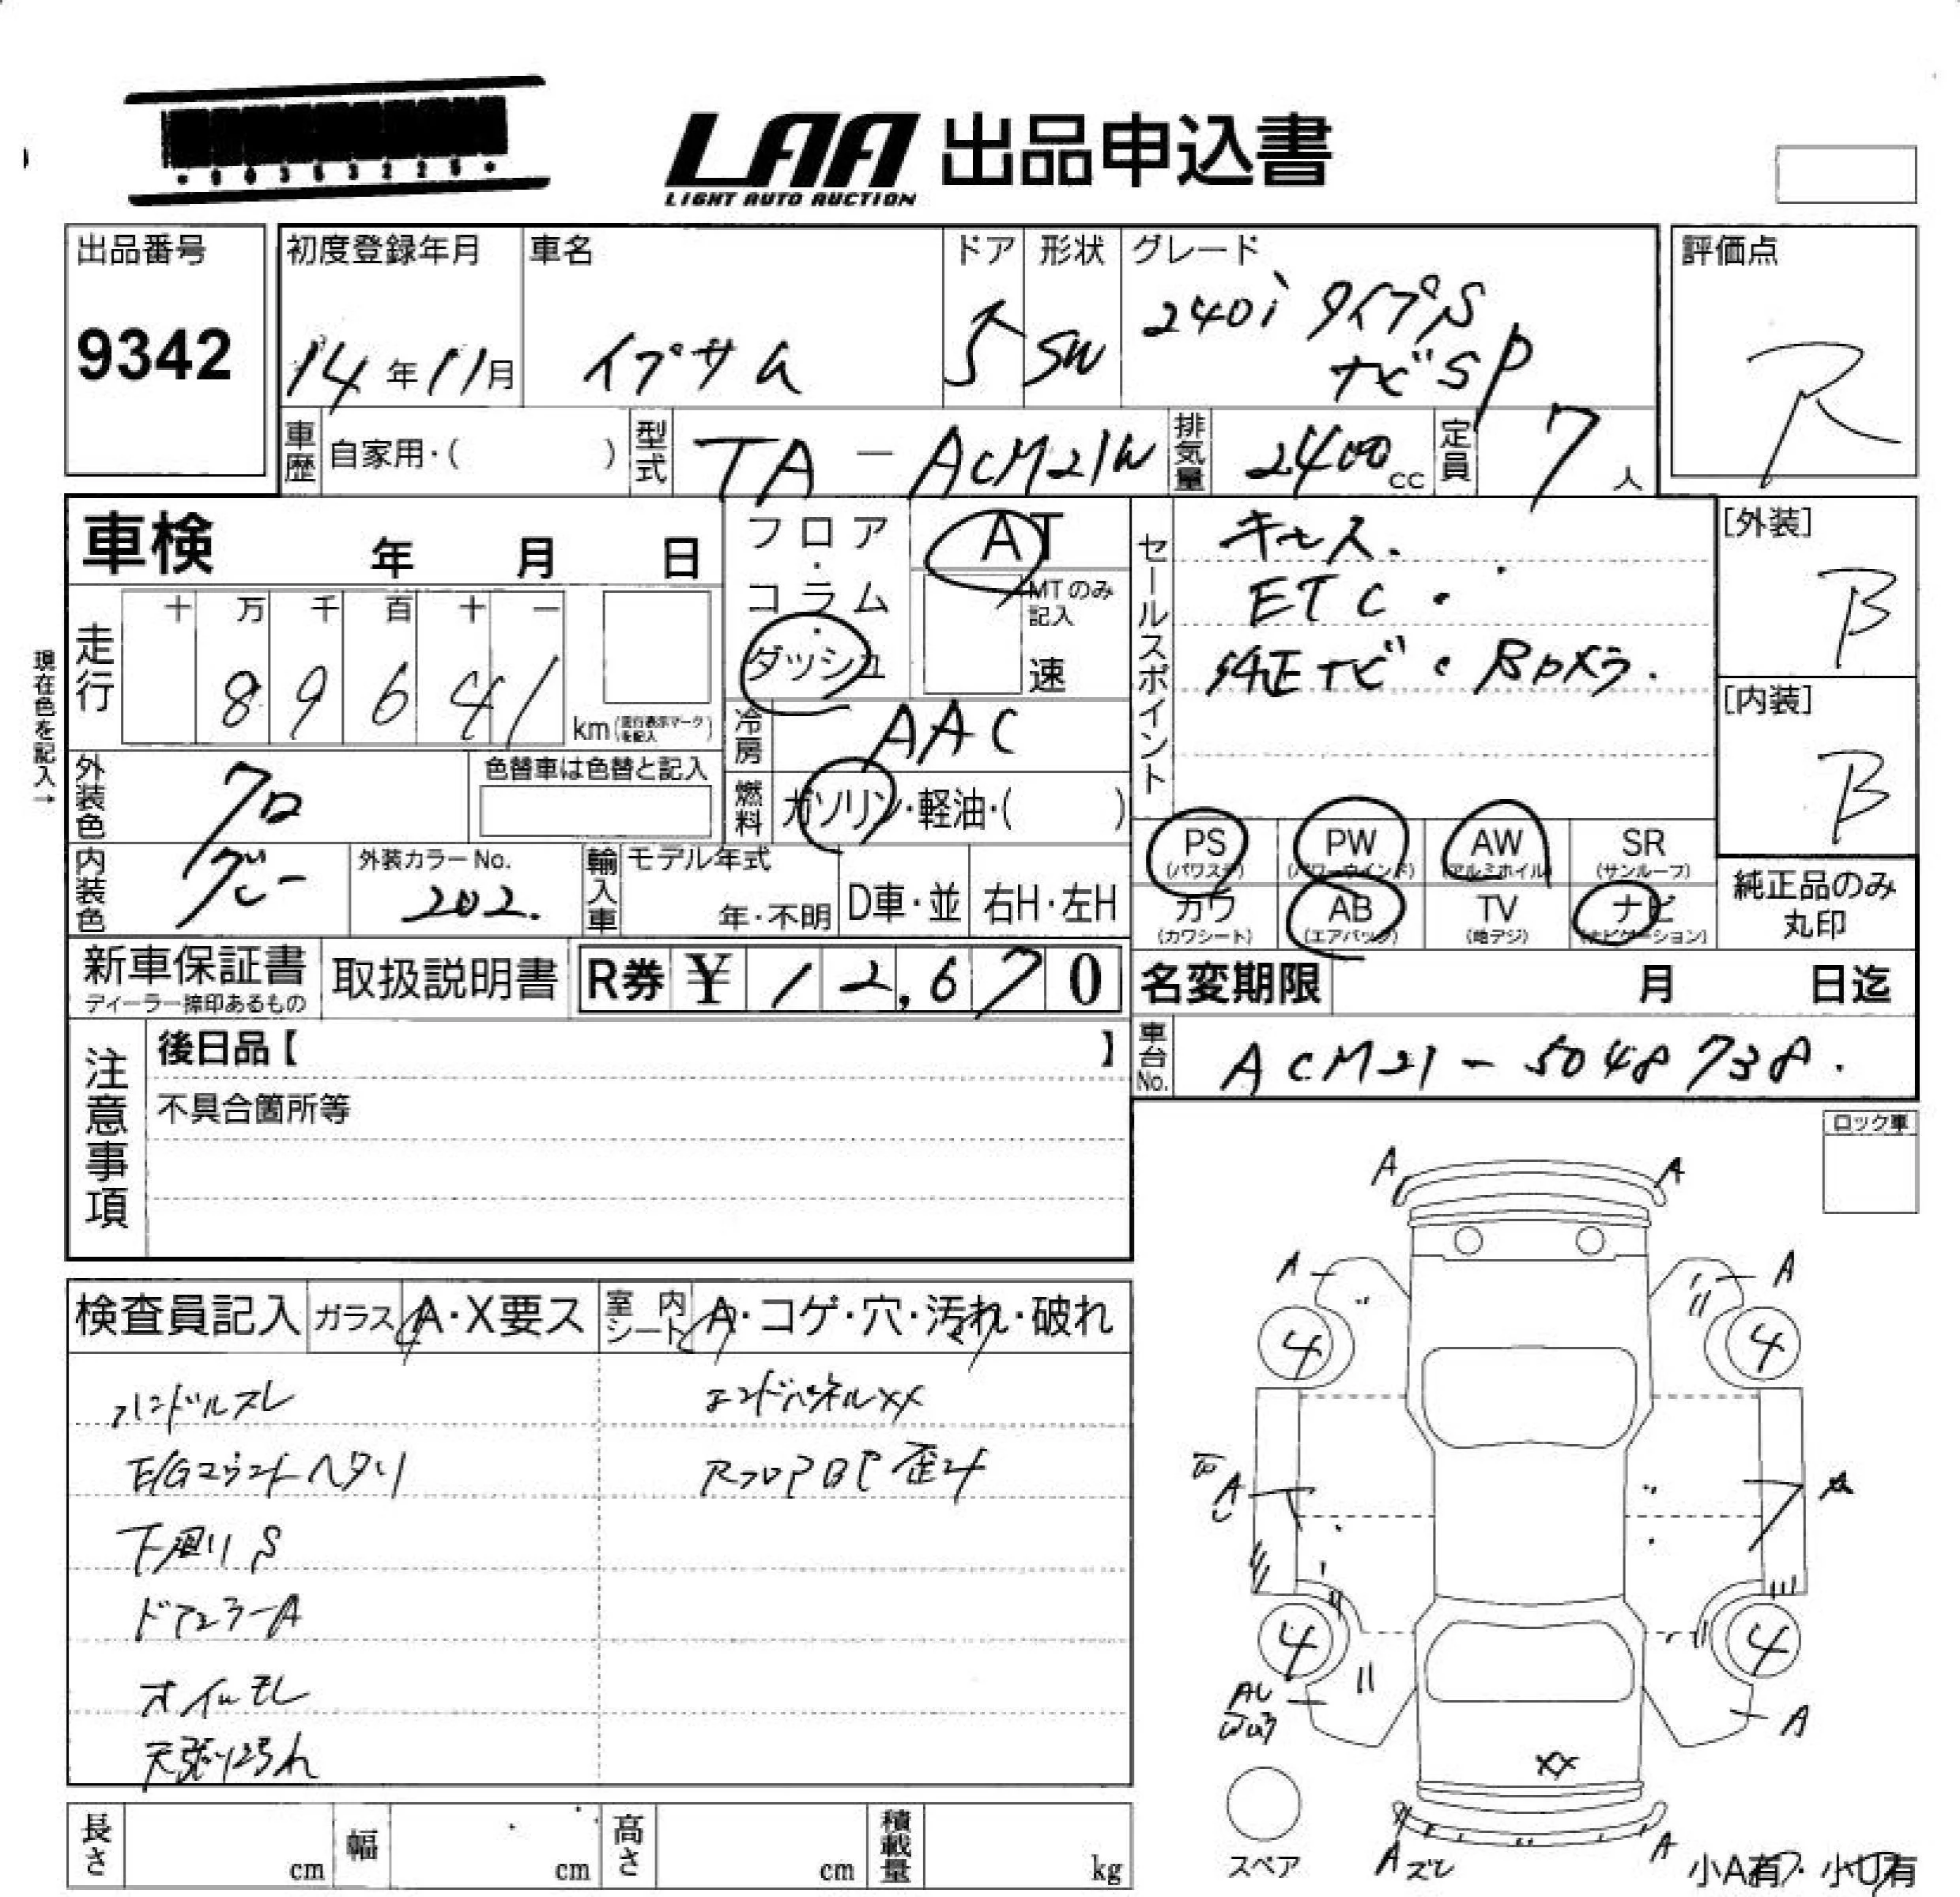 LAA 出品申込書
LIGHT AUTO AUCTION
出品番号
9342
初度登録年月
14年11月
車名
イプサム
ドア
5
形状
SW
グレード
240i タイプS
ナビSP
評価点
R
車歴 自家用・( )
型式 TA-ACM21W
排気量 2400cc
定員 7人
車検 年 月 日
フロア・コラム・ダッシュ
AT
MTのみ記入
速
セールスポイント
キセス.
ETC・
純正ナビ・Bカメラ.
[外装]
B
[内装]
B
現在色を記入→
走行
十 万 千 百 十 一
8 9 6 4 1
km(走行表示マークを記入)
冷房 AAC
燃料 ガソリン・軽油・( )
外装色 クロ
色替車は色替と記入
内装色 グレー
外装カラーNo.
202.
輸入車
モデル年式
年・不明
D車・並
右H・左H
PS (パワステ)
PW (パワーウインド)
AW (アルミホイル)
SR (サンルーフ)
カワ (カワシート)
AB (エアバック)
TV (地デジ)
ナビ (ナビゲーション)
純正品のみ
丸印
新車保証書
ディーラー捺印あるもの
取扱説明書
R券 ¥ 12,670
名変期限 月 日迄
車台No. ACM21-5048738.
注意事項
後日品【 】
不具合箇所等
ロック車
検査員記入
ガラス A・X要ス
室内シート A・コゲ・穴・汚れ・破れ
ハンドルスレ
E/Gマウントヘタリ
下廻りS
ドアミラーA
オイルモレ
天張り汚れ
エンドパネルXX
RフロアBP歪み
A
A
A
A
4
4
A
4
4
A
XX
スペア
Aズレ
A
小A有・小U有
長さ cm
幅 cm
高さ cm
積載量 kg